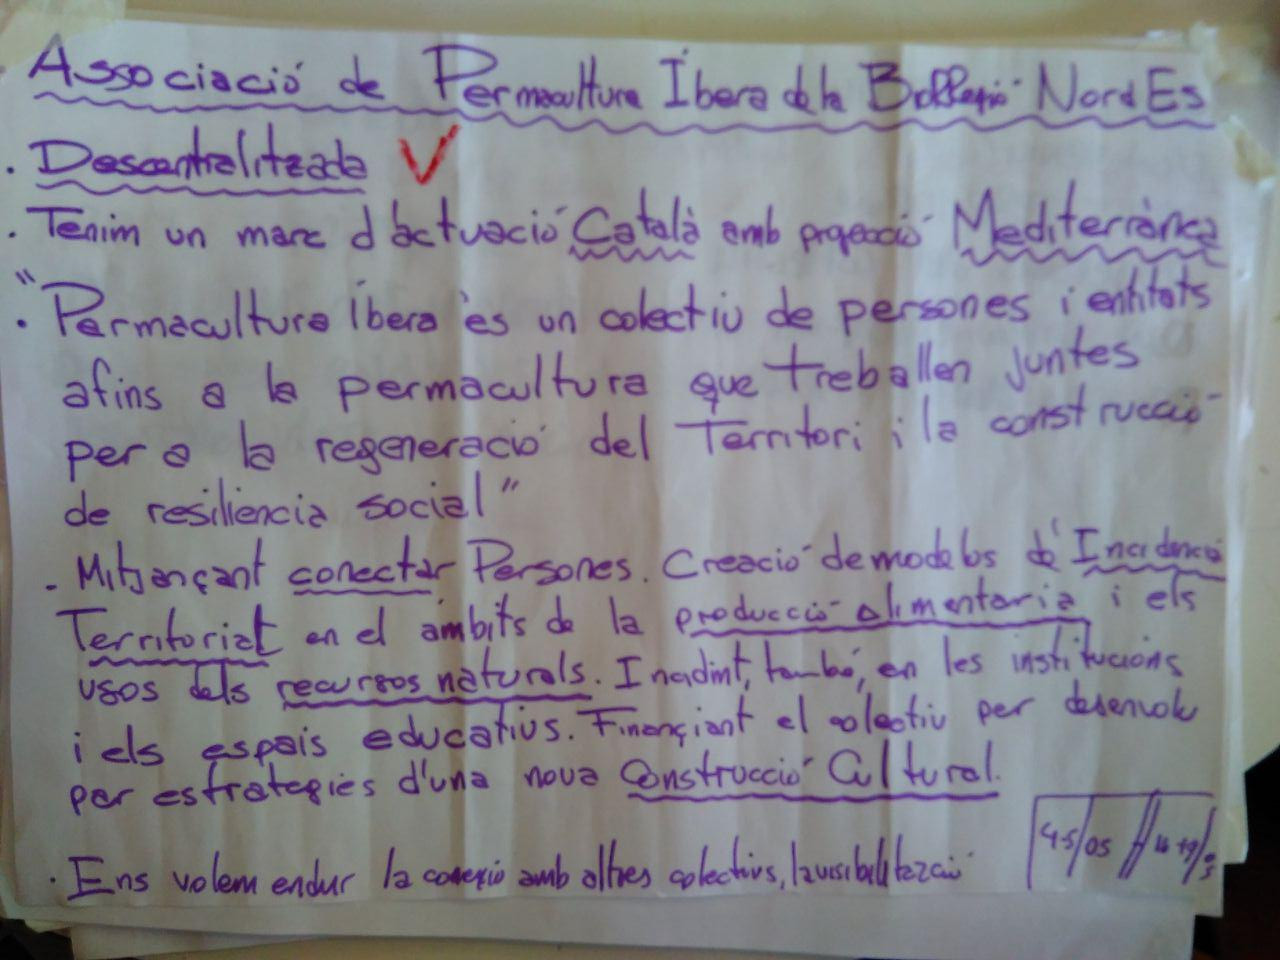 Associació de Permacultura Íbera de la Bioregió NordEs
. Descentralitzada V
. Tenim un marc d'actuació Català amb projecció Mediterrànea
" . Permacultura Íbera és un colectiu de persones i entitats
afins a la permacultura que treballen juntes
per a la regeneració del Territori i la construcció
de resiliència social"
. Mitjançant conectar Persones. Creació de models d'Incidencia
Territorial en el àmbits de la producció alimentaria i els
usos dels recursos naturals. Incidint, també, en les institucions
i els espais educatius. Finançiant el colectiu per desenvolu
per estrategies d'una nova Construcció Cultural.
. Ens volem endur la conexió amb altres colectius, la visibilització
4-5/05